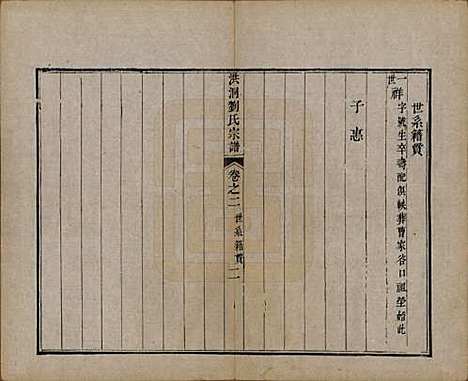 世系籍貫
一世
祥 字號生卒壽配俱軼葬曹家谷口祖塋始此
子惠
洪洞劉氏宗譜
卷之二 世系籍貫 二